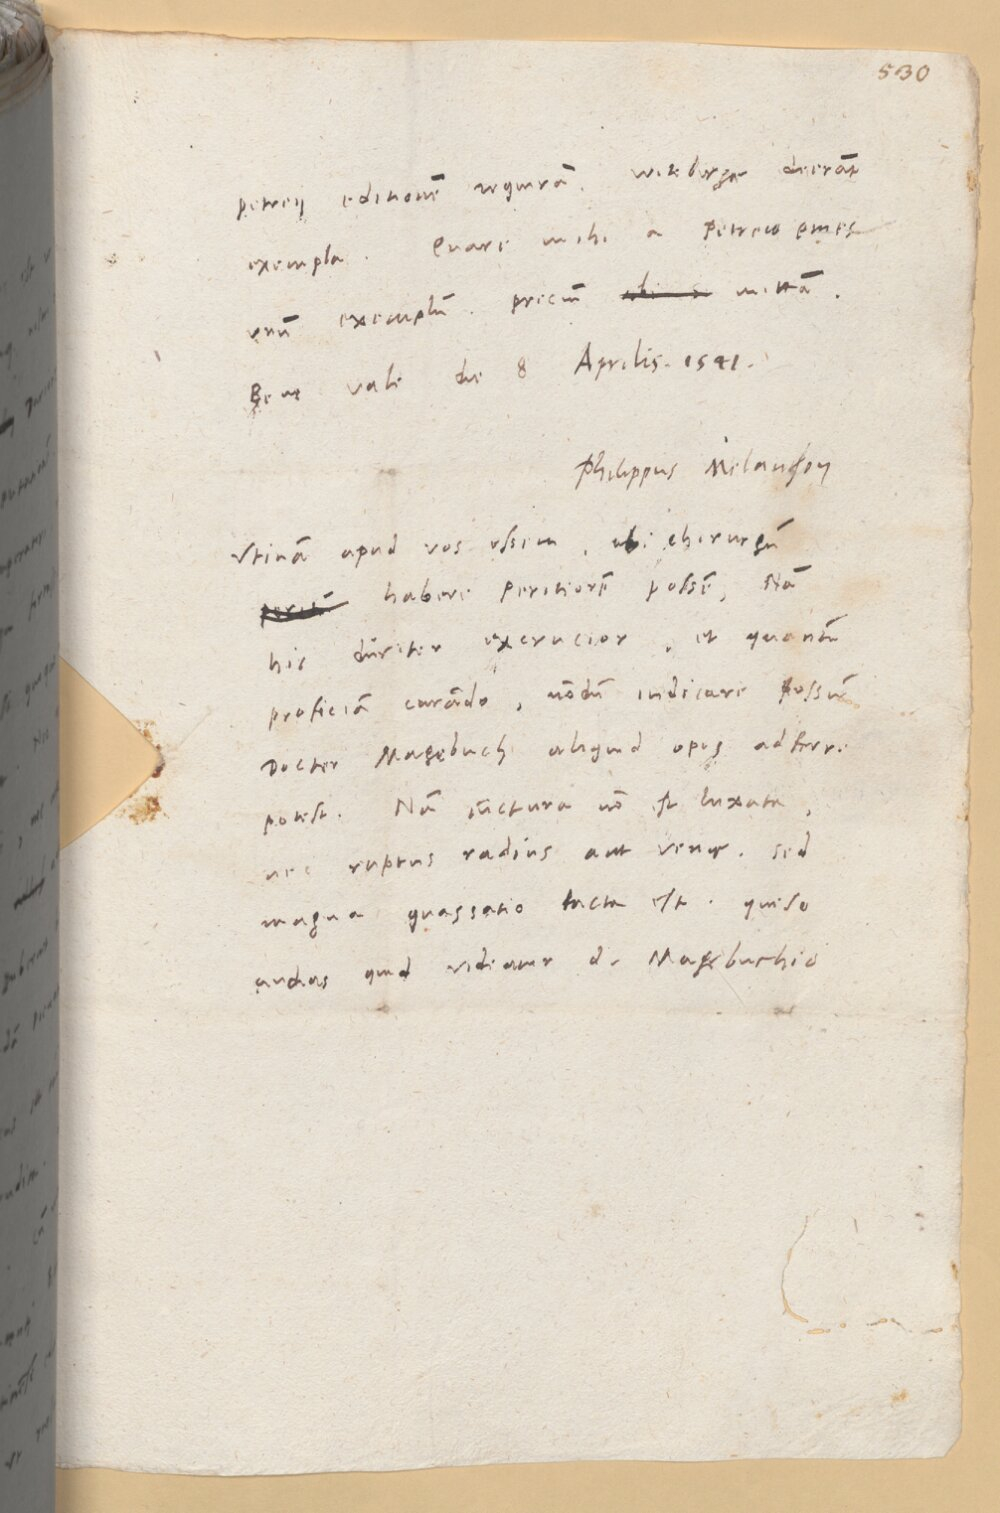 530
petreij editionē requirā. witebergæ deerāt
exempla. Quare mihi a Petreio emes
vnū exemplū. preciū mittā.
Bene vale die 8 Aprilis. 1541.
Philippus Melanthon
Vtinā apud vos essem, ubi chirurgū
habere peritiorē possē, Nā
hic duriter excrucior, et quantū
proficiā curādo, nōdū iudicare possū
Doctor Magebuch aliquid opis adferre
potest. Nā iūctura nō est luxata,
nec ruptus radius aut venę. sed
magna quassatio facta est. queso
audias quid videatur d. Magebuchio